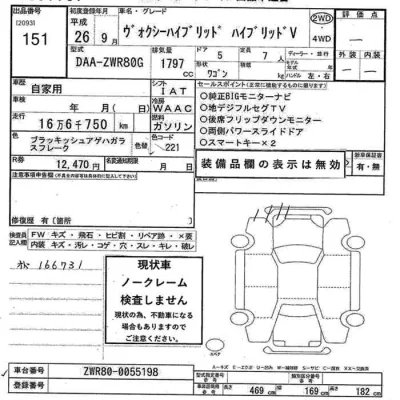 出品番号 初度登録年月 車名・グレード 評価点
[20931]
151
平成 26年9月 ヴォクシーハイブリッド ハイブリッドV 2WD・4WD
型式 排気量 ドア 定員
DAA-ZWR80G 1797cc 5 7人
ワゴン ハンドル 左・右 外装 内装
車歴 自家用 シフト IAT
セールスポイント
車検 年 月(日) 冷房 WAAC
○純正BIGモニターナビ
○地デジフルセグTV
走行 16万6千750km 燃料 ガソリン
○後席フリップダウンモニター
○両側パワースライドドア
色 ブラッキッシュアゲハガラスフレーク 色替 カラーコード 221
○スマートキー×2
R券 12,470円 名変期限 月 日
装備品欄の表示は無効
新車保証書 有・無
注意事項申告欄
修復歴 有〔箇所 〕
検査員記入欄
FW キズ・飛石・ヒビ割・リペア跡・×要
内装 キズ・汚レ・コゲ・穴・スレ・キレ・破レ
166731
現状車
ノークレーム
検査しません
現状の為、不動車になる場合もありますのでご注意ください。
スペア
車台番号 ZWR80-0055198
登録番号
型式指定番号 類別区分番号
長さ 469cm 幅 169cm 高さ 182cm